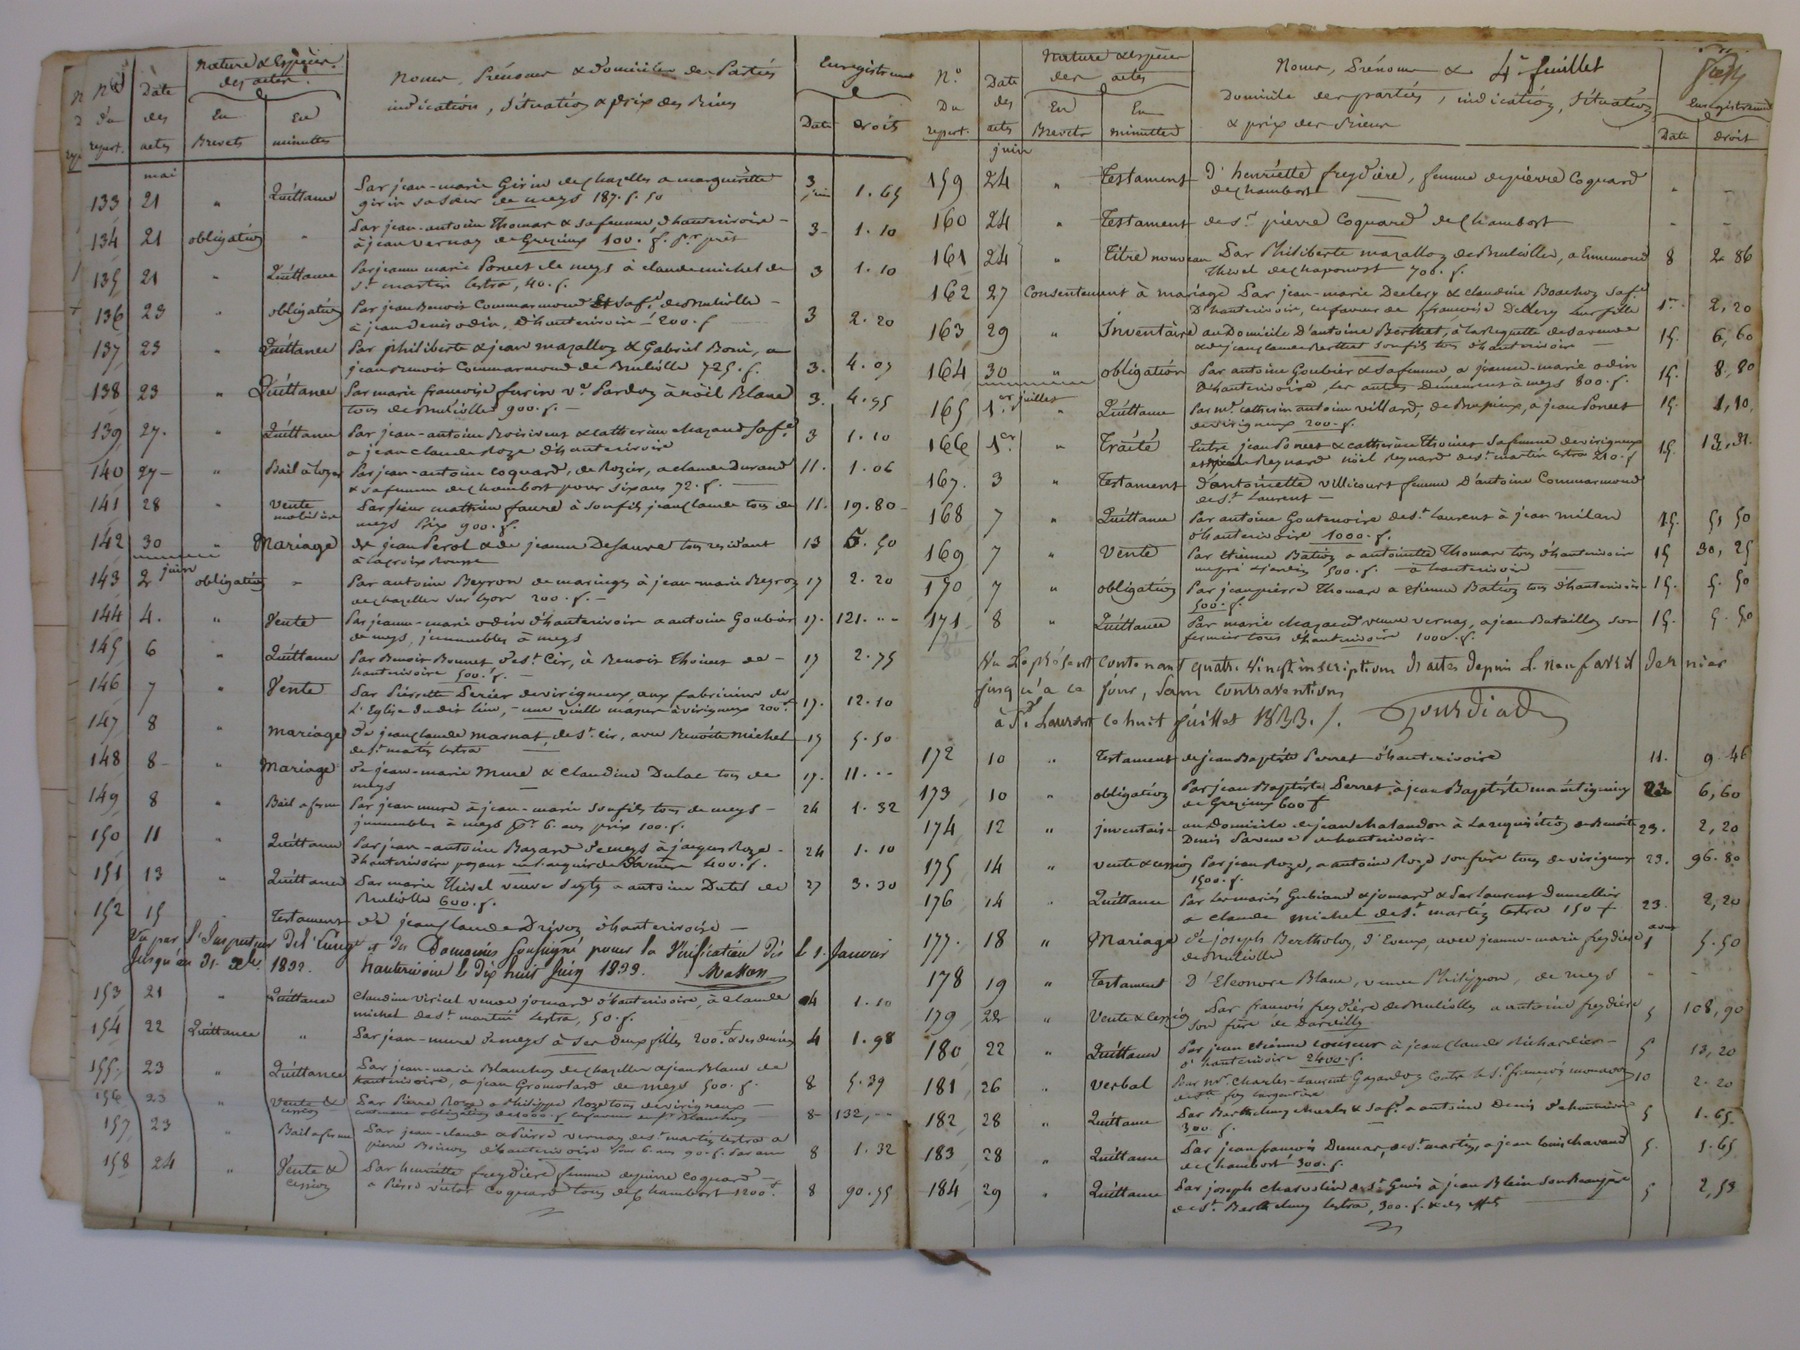 Nature & Espèces
des actes.
N° Date Noms, Prénoms & domiciles des Parties Enregistrement
du des En En indication, Situation & prix des Biens
repert. actes Brevets minutes Date droits
mai
133 21 " Quittance Par jean-marie Girin de chazelles a margueritte 3 juin 1.65
girin sa soeur de meys 187.f.50
134 21 obligation " Par jean-antoine Thomas & sa femme, d'hauterivoire - 3 1.10
à jean vernay de Grezieux 100.f. pr prêt
135 21 " Quittance Par jeanne marie Poncet de meys à claude michel de 3 1.10
st. martin lestra, 40.f.
136 23 " obligation Par jean Benoit Commarmond et sa fe. de Brulliolle - 3 2.20
à jean denis odin, d'hauterivoire - 200.f
137 23 " Quittance Par philiberte & jean mazallon & Gabriel Boni, a 3. 4.07
jean benoit Commarmond de Brulliolle 725.f.
138 23 " Quittance Par marie francoise furin ve. Pardon à noël Blanc 3. 4.95
tous de Brulliolle 900.f. -
139 27. " Quittance Par jean-antoine & catherine Mazaud sa fe. 3 1.10
a jean claude Roze d'hauterivoire
140 27 - " Bail à loyer Par jean-antoine Coquard, de Rozier, a claude Durand 11. 1.06
& sa femme de chambost pour six ans 72.f.
141 28 vente Par sieur mathieu faure à son fils jean claude tous de 11. 19.80
mobilière meys prix 900.f.
142 30 " Mariage de jean Perol & de jeanne Defaure tous residant 13 5.50
à la croix rousse
juin
143 2 obligation " Par antoine Beyron de maringes à jean-marie Beyron 17 2.20
de chazelles sur lyon 200.f. -
144 4. " Vente Par jeanne-marie odin d'hauterivoire a antoine Goubier 17. 121.--
de meys, immeubles à meys
145 6 " Quittance Par Benoit Bonnet de st. Cir, à Benoit Thoinet de - 17 2.75
hauterivoire 500.f. -
146 7 " Vente Par Pierrette Perier de virigneux, aux fabriciens de 17. 12.10
l'Eglise du dit lieu, - une vieille masure à virigneux 200.f
147 8 " mariage de jean claude marnat, de st. cir, avec Benoite michel 17 5.50
de st. martin lestra
148 8 - " Mariage de jean-marie Mure & claudine Dulac tous de 17. 11.--
meys
149 8 " Bail a ferme Par jean mure à jean-marie son fils tous de meys - 24 1.32
immeubles à meys pr. 6. ans prix 100.f.
150 11 " Quittance Par jean-antoine Bazard de meys à jacques Roze - 24 1.10
d'hauterivoire payant en l'acquit de 400.f.
151 13 " Quittance Par marie Thivel veuve a antoine Dutel de 27 3.30
Brulliolle 600.f.
152 15 - Testament de jean claude Drivon d'hauterivoire -
Vu par l'Inspecteur de l'Enregt. et des Domaines Soussigné pour la Vérification dès le 1. Janvier
jusqu'au 31. xbre 1832. hauterivoire le dix huit Juin 1833. Masson
153 21 " Quittance claudine viricel veuve jomard d'hauterivoire, à claude 4 1.10
michel de st. martin lestra, 50.f.
154 22 Quittance " Par jean-mure de meys à ses deux filles 200.f & ses deniers 4 1.98
155 23 " Quittance Par jean-marie Blanchon de chazelles a jean Blanc de 8 5.39
hauterivoire, a jean Gromolard de meys 500.f.
156 23 " Vente & Par Pierre Roze a Philippe Roze tous de virigneux - 8 - 132,--
cession
157 23 " Bail a ferme Par jean-claude & Pierre vernay de st. martin lestra a 8 1.32
pierre d'hauterivoire pour 6 ans 90.f. par an
158 24 " Vente & Par henriette freydière femme de pierre Coquard - 8 90.55
cession a Pierre victor Coquard tous de chambost 1200.f
Nature & espèces
des actes Noms, Prénoms & 4e feuillet
N° Date Domicile des parties, indication, situation Enregistrement
Du des En En & prix des Biens
repert. actes Brevets minutes Date droit
juin
159 24 " Testament d'henriette freydière, femme de pierre Coquard - -
de chambost
160 24 " Testament de sr. pierre Coquard de chambost - -
161 24 " Titre nouveau Par Philiberte mazallon de Brulliolle, a Ennemond 8 2.86
Thivel de chaponost 700.f.
162 27 Consentement à mariage Par jean-marie Deslery & claudine Boachon sa fe. 1er 2,20
d'hauterivoire, en faveur de francoise Deslery leur fille
163 29 " Inventaire au Domicile d'antoine Berthet, à la Requette de sa veuve 15. 6,60
& de jean claude Berthet son fils tous d'hauterivoire
164 30 " obligation Par antoine Goubier & sa femme a jeanne-marie odin 15. 8,80
d'hauterivoire, les autres demeurant à meys 800.f.
juillet
165 1er " Quittance Par mr. catherin antoine villard, de Brussieux, a jean Poncet 15. 1,10,
de virigneux 200.f.
166 1er. " Traité Entre jean Poncet & catherine Thoinet sa femme de virigneux 15. 13,31.
Reynard noël Reynard de st. martin lestra 210.f
167. 3 " Testament d'antoinette villicourt femme d'antoine Commarmond
de st. Laurent -
168 7 " Quittance Par antoine Goutenoire de st. Laurent à jean milan 15. 5,50
d'hauterivoire 1000.f.
169 7 " Vente Par Etienne Bation a antoinette Thomas tous d'hauterivoire 15 30,25
un pré & jardin 500.f. - à hauterivoire -
170 7 " obligation Par jean pierre Thomas a Etienne Bation tous d'hauterivoire 15. 5.50
500.f.
171 8 " Quittance Par marie Mazaud veuve vernay, a jean Bataillon son 15. 5.50
fermier tous d'hauterivoire 1000.f.
Vu Le présent contenant quatre Vingt inscriptions D'actes depuis le neuf avril Dernier
jusqu'à ce jour, sans contraventions
à St. Laurent le huit juillet 1833./. Gourdiad
172 10 " Testament de jean Baptiste Perret d'hauterivoire 11. 9.46
173 10 " obligation Par jean Baptiste Perret à jean Baptiste 23 6,60
de Grezieux 600 f
174 12 " inventaire au Domicile de jean chatandon à La requisition de Benoite 23. 2,20
Denis sa veuve d'hauterivoire -
175 14 " vente & cession Par jean Roze, a antoine Roze son frère tous de virigneux 23. 96.80
1500.f.
176 14 " Quittance Par les mariés Gubiand & jomard & Par Laurent Dumellier 23. 2,20
a claude michel de st. martin lestra 150 f
177. 18 " Mariage de joseph Bertholon, d'Eveux, avec jeanne-marie freydière aout 1 5.50
de Brulliolle
178 19 " Testament D'Eleonore Blanc, veuve Philippon, de meys - -
179 22 " Vente & cession Par francois freydière de Brulliolles a antoine freydière 5 108,90
son frère de Dareizé
180 22 " Quittance Par jean etienne à jean claude Richardier - 5 13,20
d'hauterivoire 2400.f.
181 26 " Verbal Par mr. Charles-Laurent Contre le sr. françois 10 2.20
de ste foy l'argentière
182 28 " Quittance Par Barthelemy & sa fe. a antoine Denis d'hauterivoire 5 1.65.
300 f.
183 28 " Quittance Par jean francois Dumas, de st. martin, a jean louis chavand 5. 1.65
de chambost 300.f.
184 29 " Quittance Par joseph de st. Genis à jean Blein son Beau père 5 2,53
de st. Barthelemy lestra, 300.f. & des effets